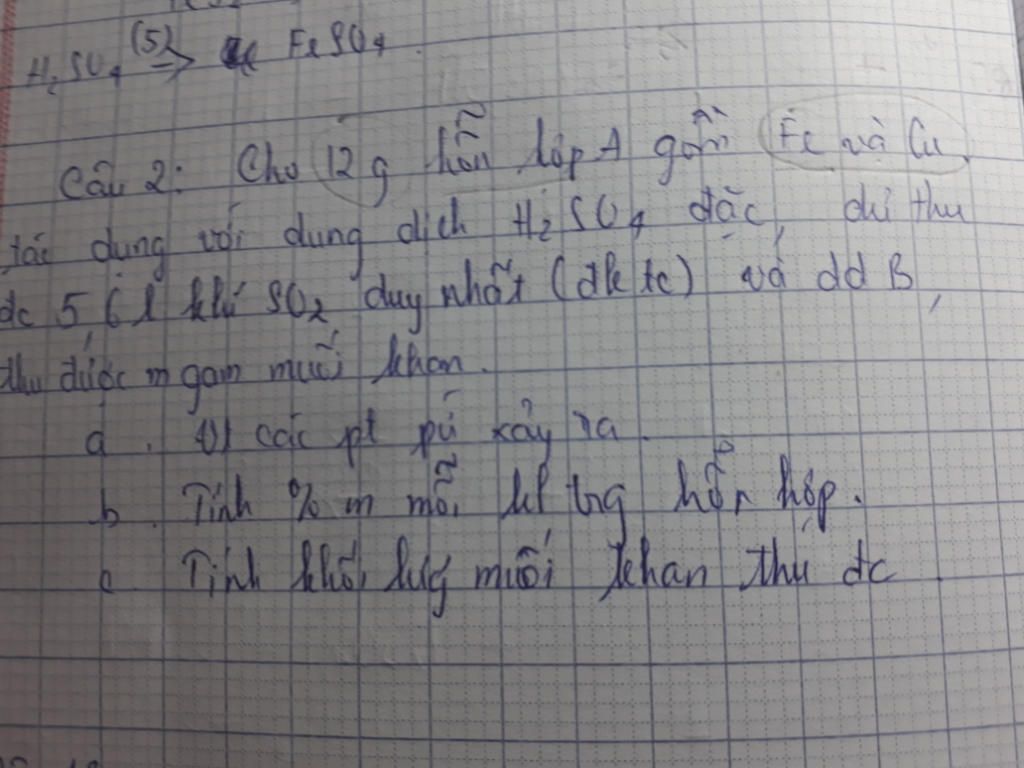 H₂SO₄ (5)→ FeSO₄.
Câu 2: Cho 12g hỗn hợp A gồm Fe và Cu
tác dụng với dung dịch H₂SO₄ đặc, dư thu
đc 5,6l khí SO₂ duy nhất (đktc) và dd B,
thu được m gam muối khan.
a. Vt các pt pứ xảy ra.
b. Tính % m mỗi kl trg hỗn hợp.
c. Tính khối lượng muối khan thu đc